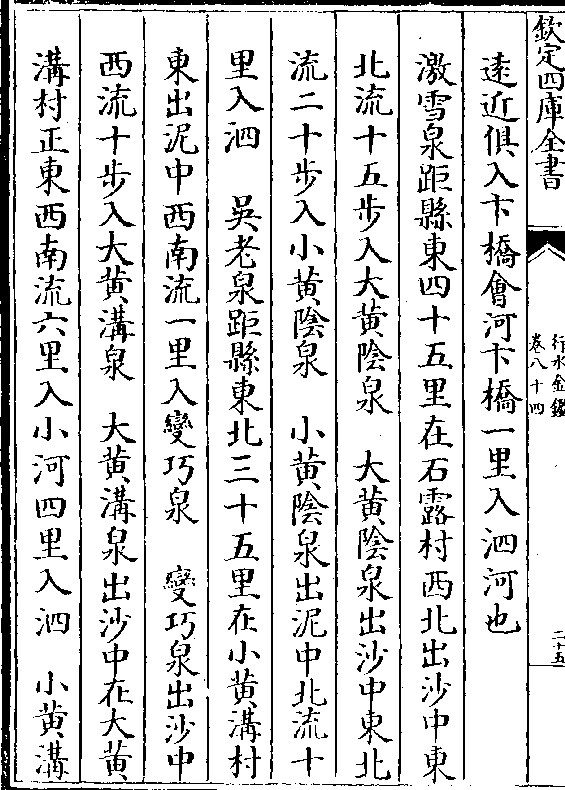 欽定四庫全書
行水金鑑
卷八十四
二十五
遠近俱入卞橋會河卞橋一里入泗河也
激雪泉距縣東四十五里在石露村西北出沙中東
北流十五步入大黄陰泉　大黄陰泉出沙中東北
流二十步入小黄陰泉　小黄陰泉出泥中北流十
里入泗　吳老泉距縣東北三十五里在小黄溝村
東出泥中西南流一里入變巧泉　變巧泉出沙中
西流十步入大黄溝泉　大黄溝泉出沙中在大黄
溝村正東西南流六里入小河四里入泗　小黄溝